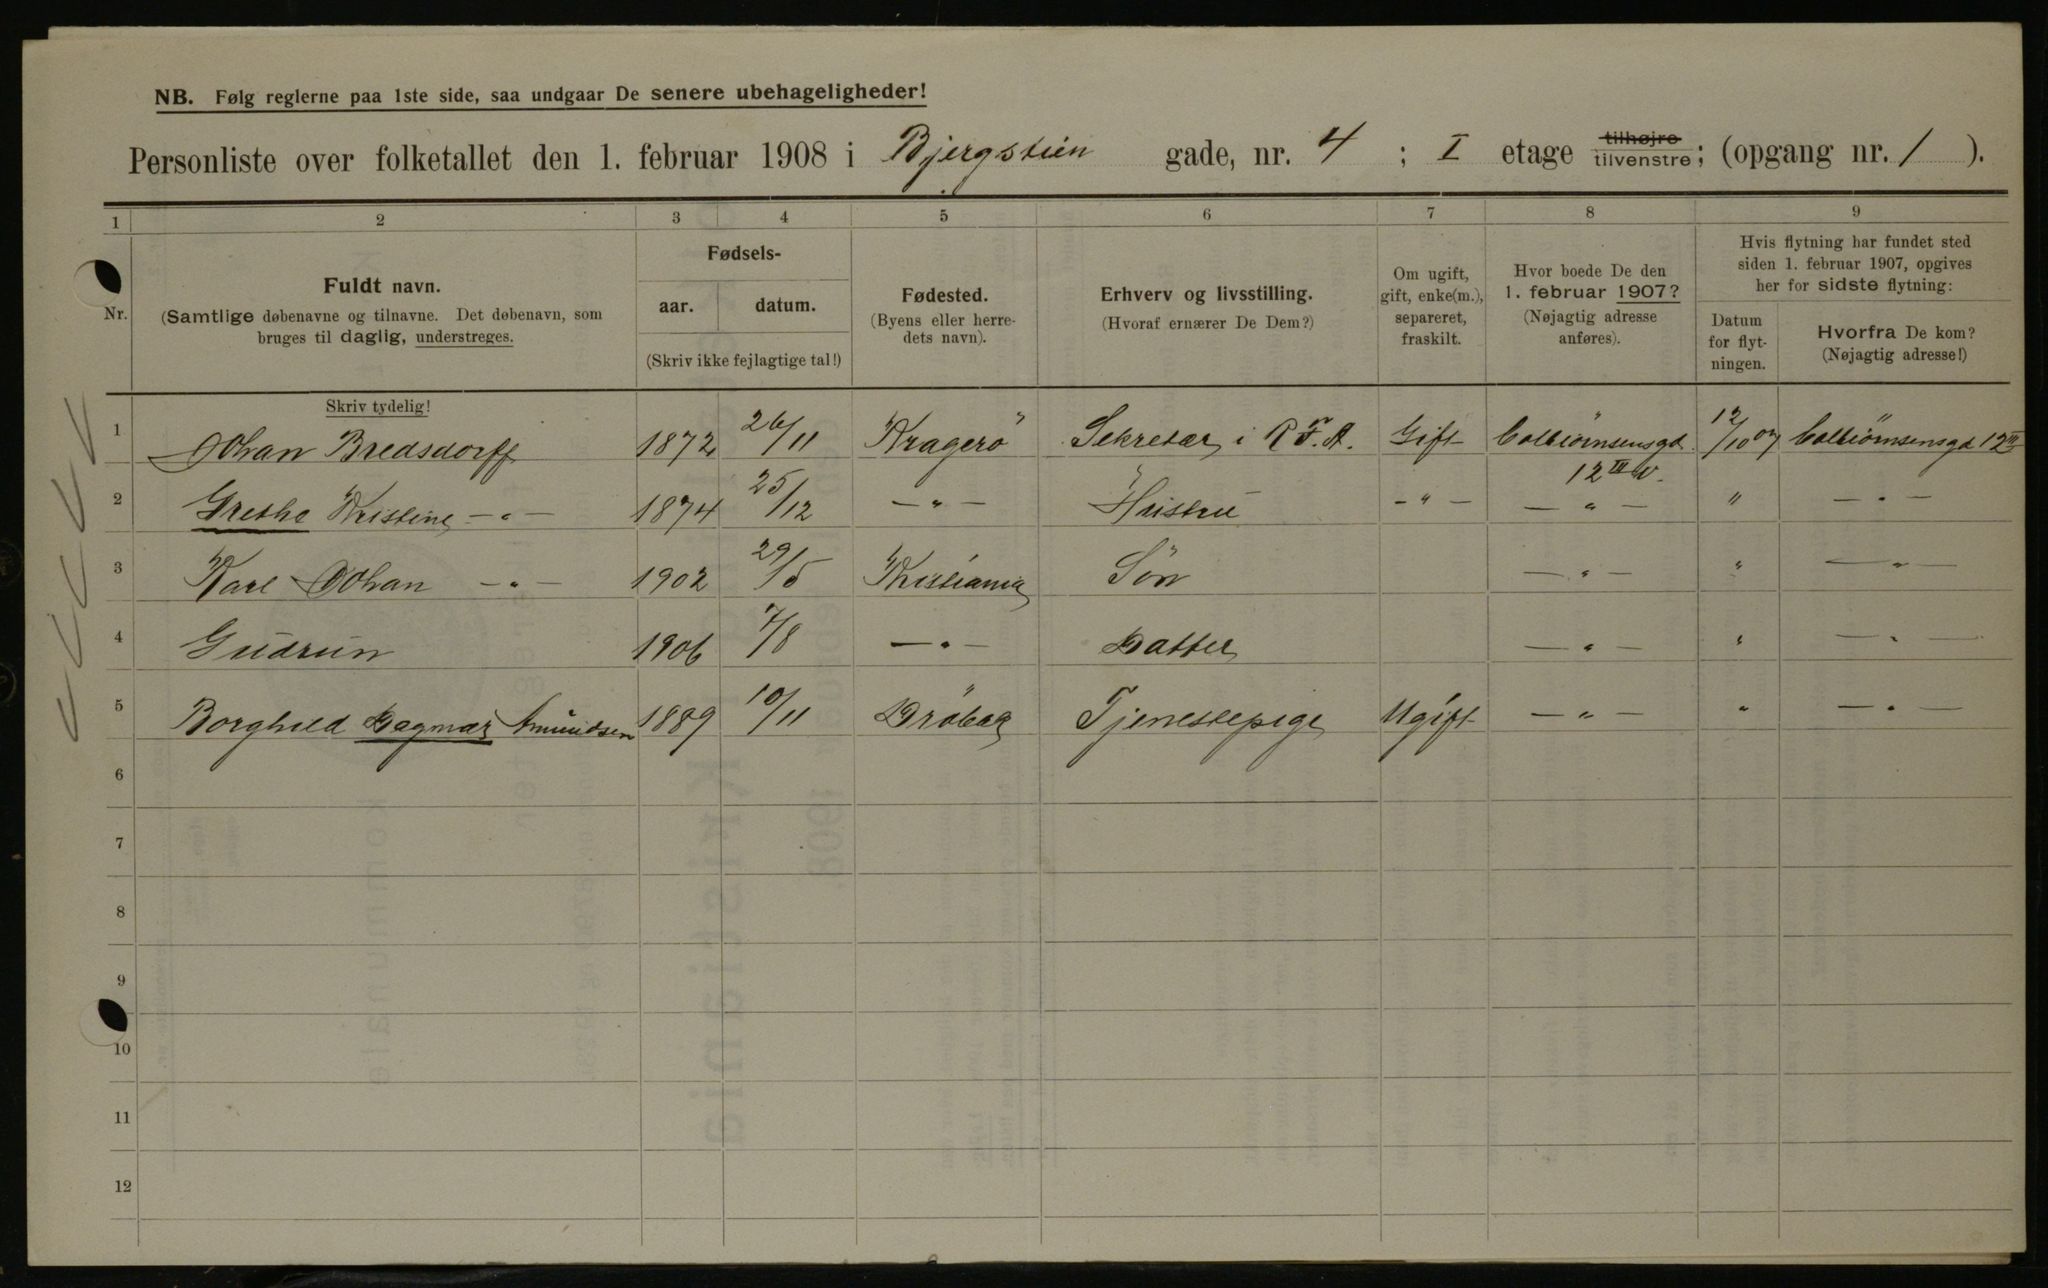 NB. Følg reglerne paa 1ste side, saa undgaar De senere ubehageligheder!
Personliste over folketallet den 1. februar 1908 i Bjergstien gade, nr. 4 ; I etage tilhøjre tilvenstre; (opgang nr. 1 ).
1 2 3 4 5 6 7 8 9
Nr. Fuldt navn. (Samtlige døbenavne og tilnavne. Det døbenavn, som bruges til daglig, understreges.
Fødsels- aar. datum. (Skriv ikke fejlagtige tal!)
Fødested. (Byens eller herredets navn).
Erhverv og livsstilling. (Hvoraf ernærer De Dem?)
Om ugift, gift, enke(m.), separeret, fraskilt.
Hvor boede De den 1. februar 1907? (Nøjagtig adresse anføres).
Hvis flytning har fundet sted siden 1. februar 1907, opgives her for sidste flytning:
Datum for flytningen.
Hvorfra De kom? (Nøjagtig adresse!)
Skriv tydelig!
1 Johan Bredsdorff 1872 26/11 Kragerö Sekretær i R.F.A. Gift Colbiörnsensgd. 12 III v. 12/10 07 Colbiörnsensgd 12 III
2 Grethe Kristine -"- 1874 25/12 -"- Hustru -"- -"- " -"-
3 Karl Johan -"- 1902 29/5 Kristiania Sön -"- " -"-
4 Gudrun 1906 7/8 -"- Datter -"- " -"-
5 Borghild Dagmar Amundsen 1889 10/11 Dröbak Tjenestepige Ugift -"- " -"-
6
7
8
9
10
11
12